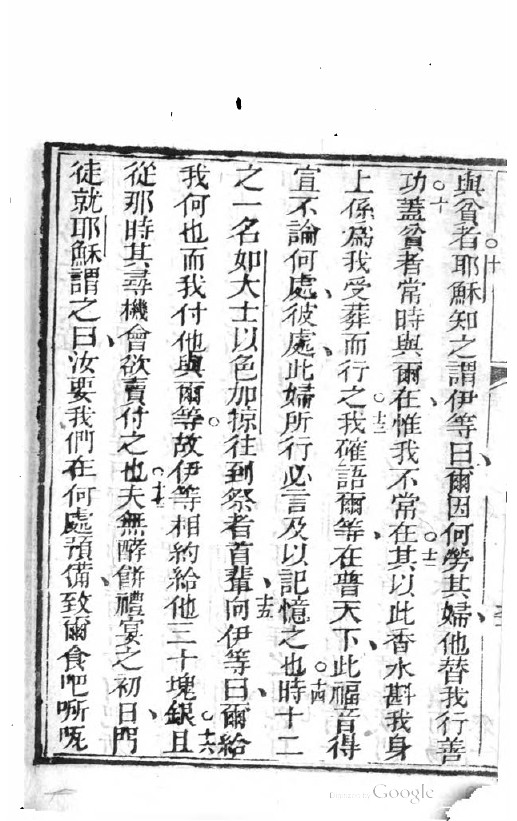 與貧者○十耶穌知之謂伊等曰、爾因何勞其婦、他替我行善
功○十一蓋貧者常時與爾在、惟我不常在○十二其以此香水斟我身
上係爲我受葬而行之○十三我確語爾等、在普天下、此福音得
宣不論何處、彼處、此婦所行必言及以記憶之也○十四時十二
之一名如大士以色加掠往到祭者首輩、十五向伊等曰、爾給
我何也而我付他與爾等○故伊等相約給他三十塊銀○十六且
從那時其尋機會欲賣付之也○十七夫無酵餅禮宴之初日、門
徒就耶穌謂之曰、汝要我們在何處預備、致爾食吧𠺕呱
Google